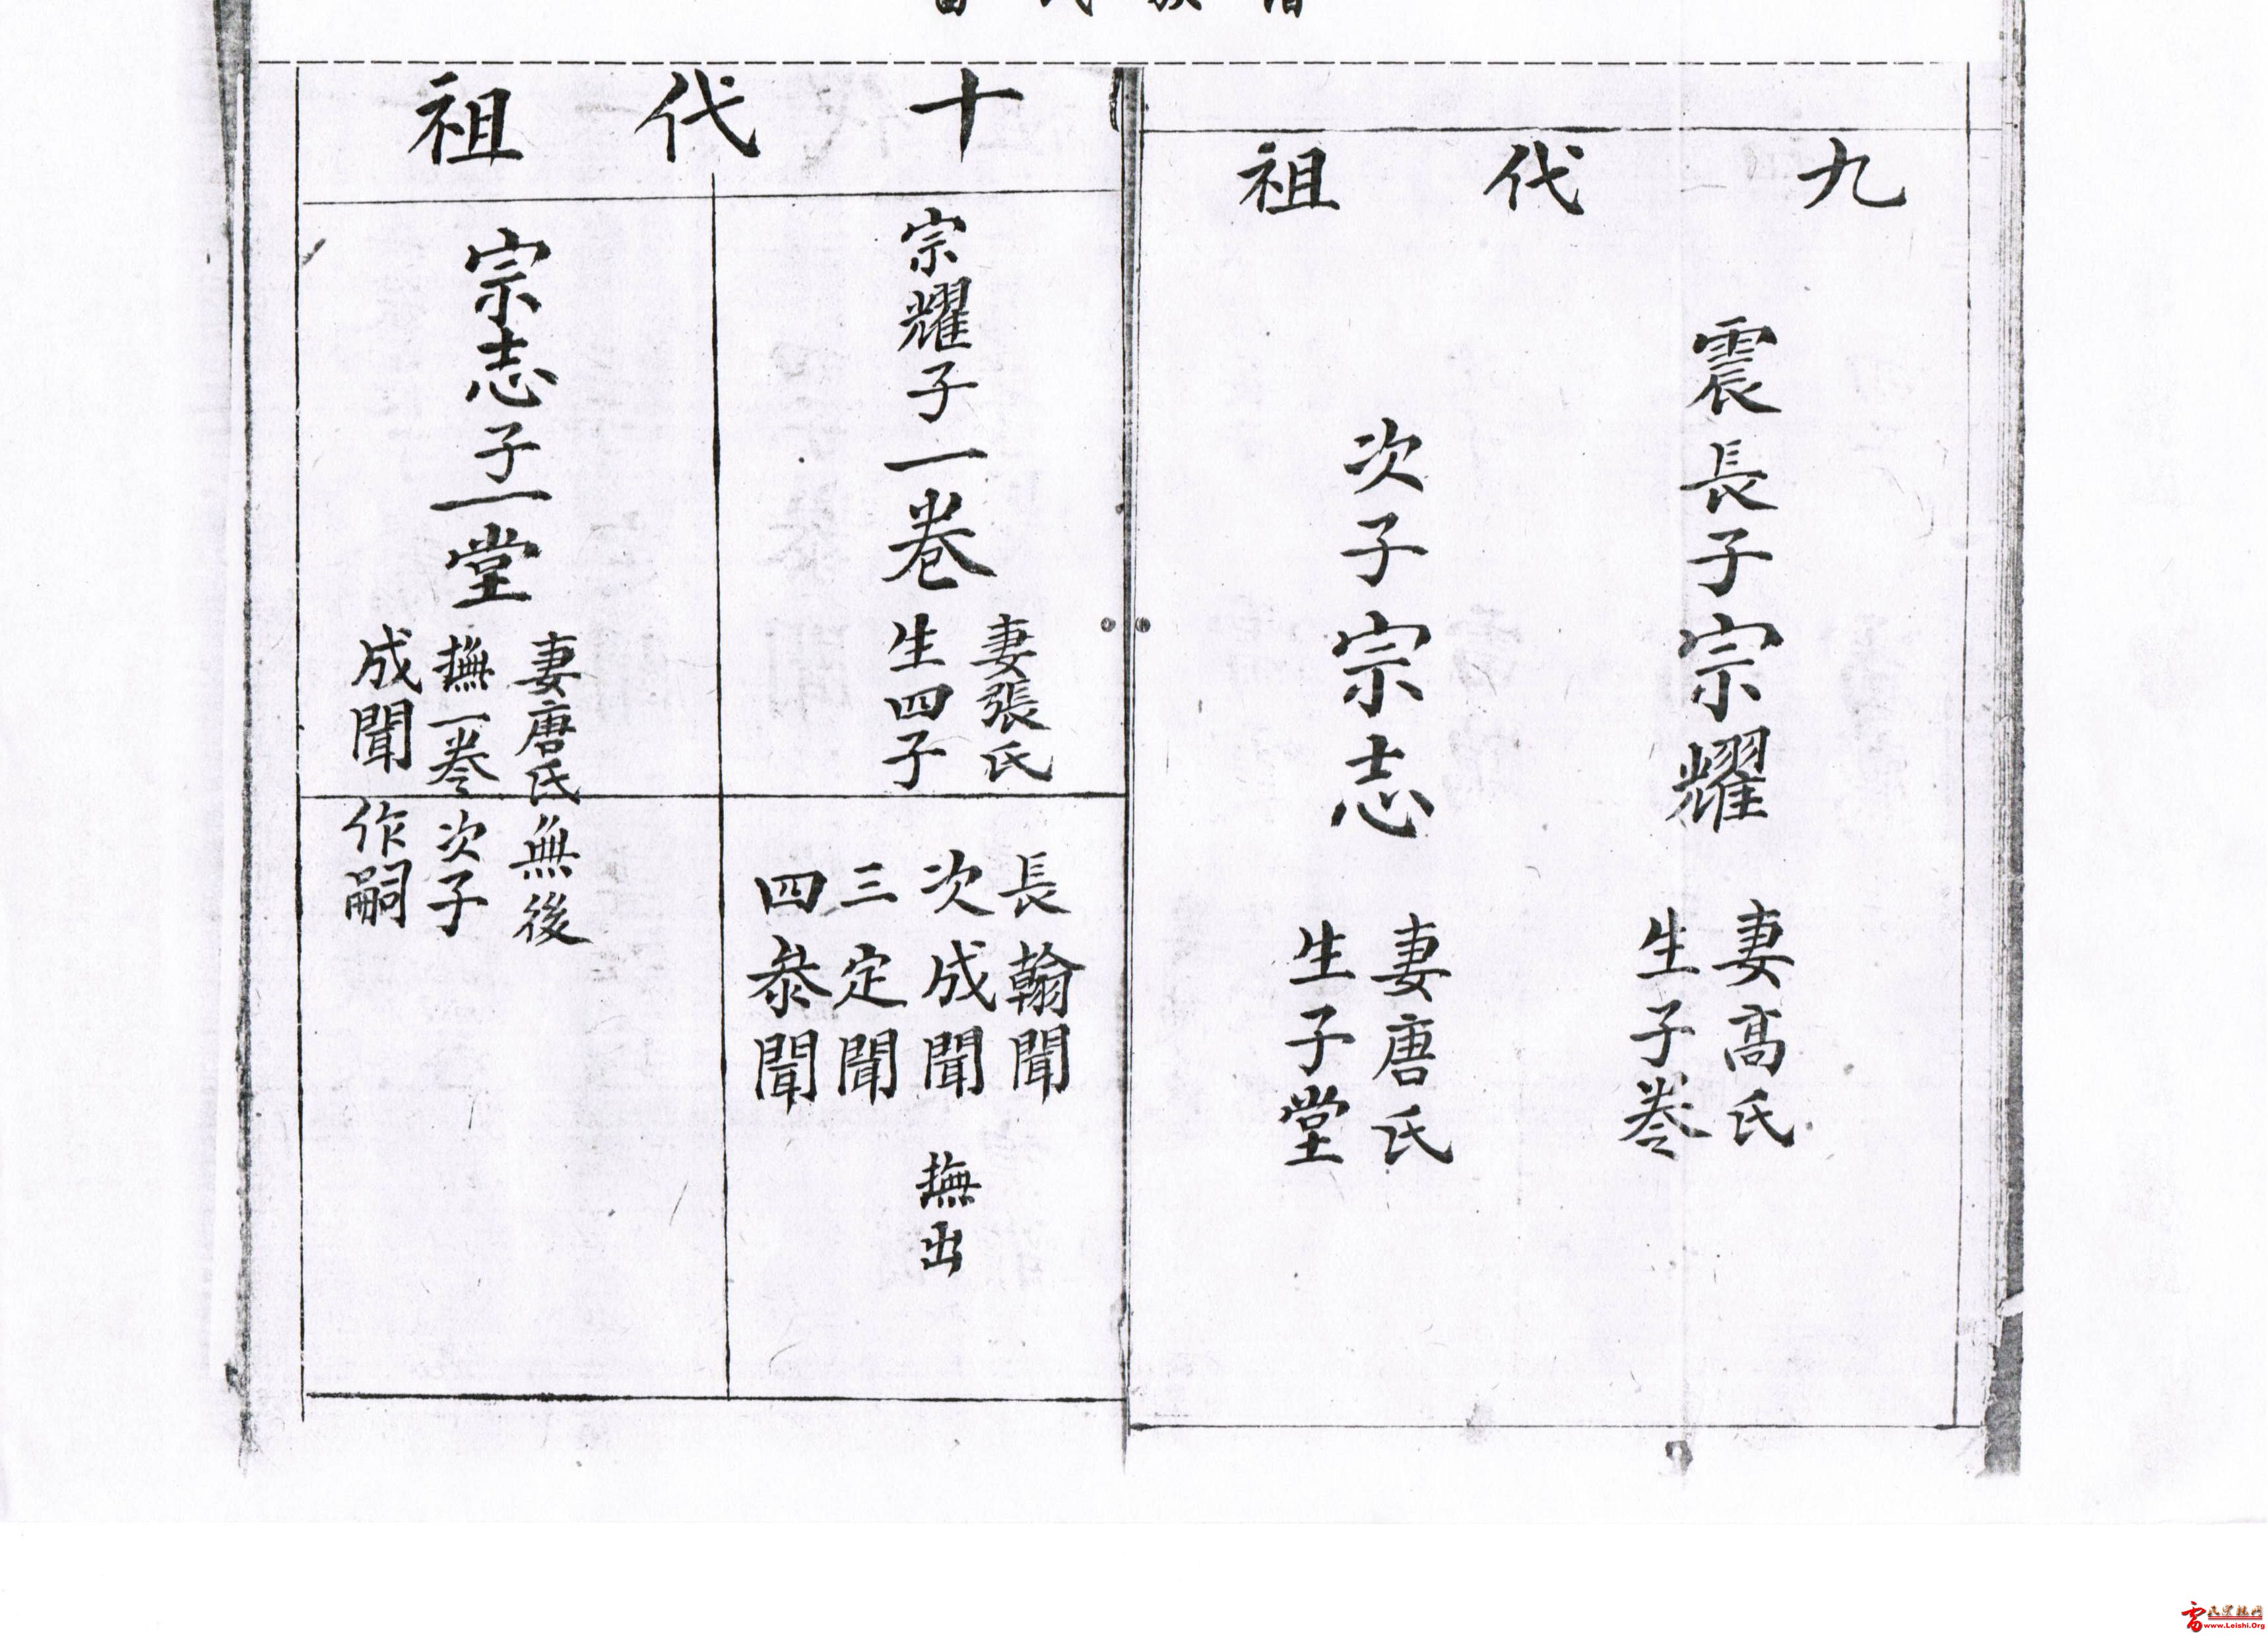 雷氏族譜
九代祖
震長子宗耀
妻高氏
生子卷
次子宗志
妻唐氏
生子堂
十代祖
宗耀子一卷
妻張氏
生四子
長翰聞
次成聞 撫出
三定聞
四叅聞
宗志子一堂
妻唐氏無後
撫一卷次子
成聞作嗣
www.Leishi.Org